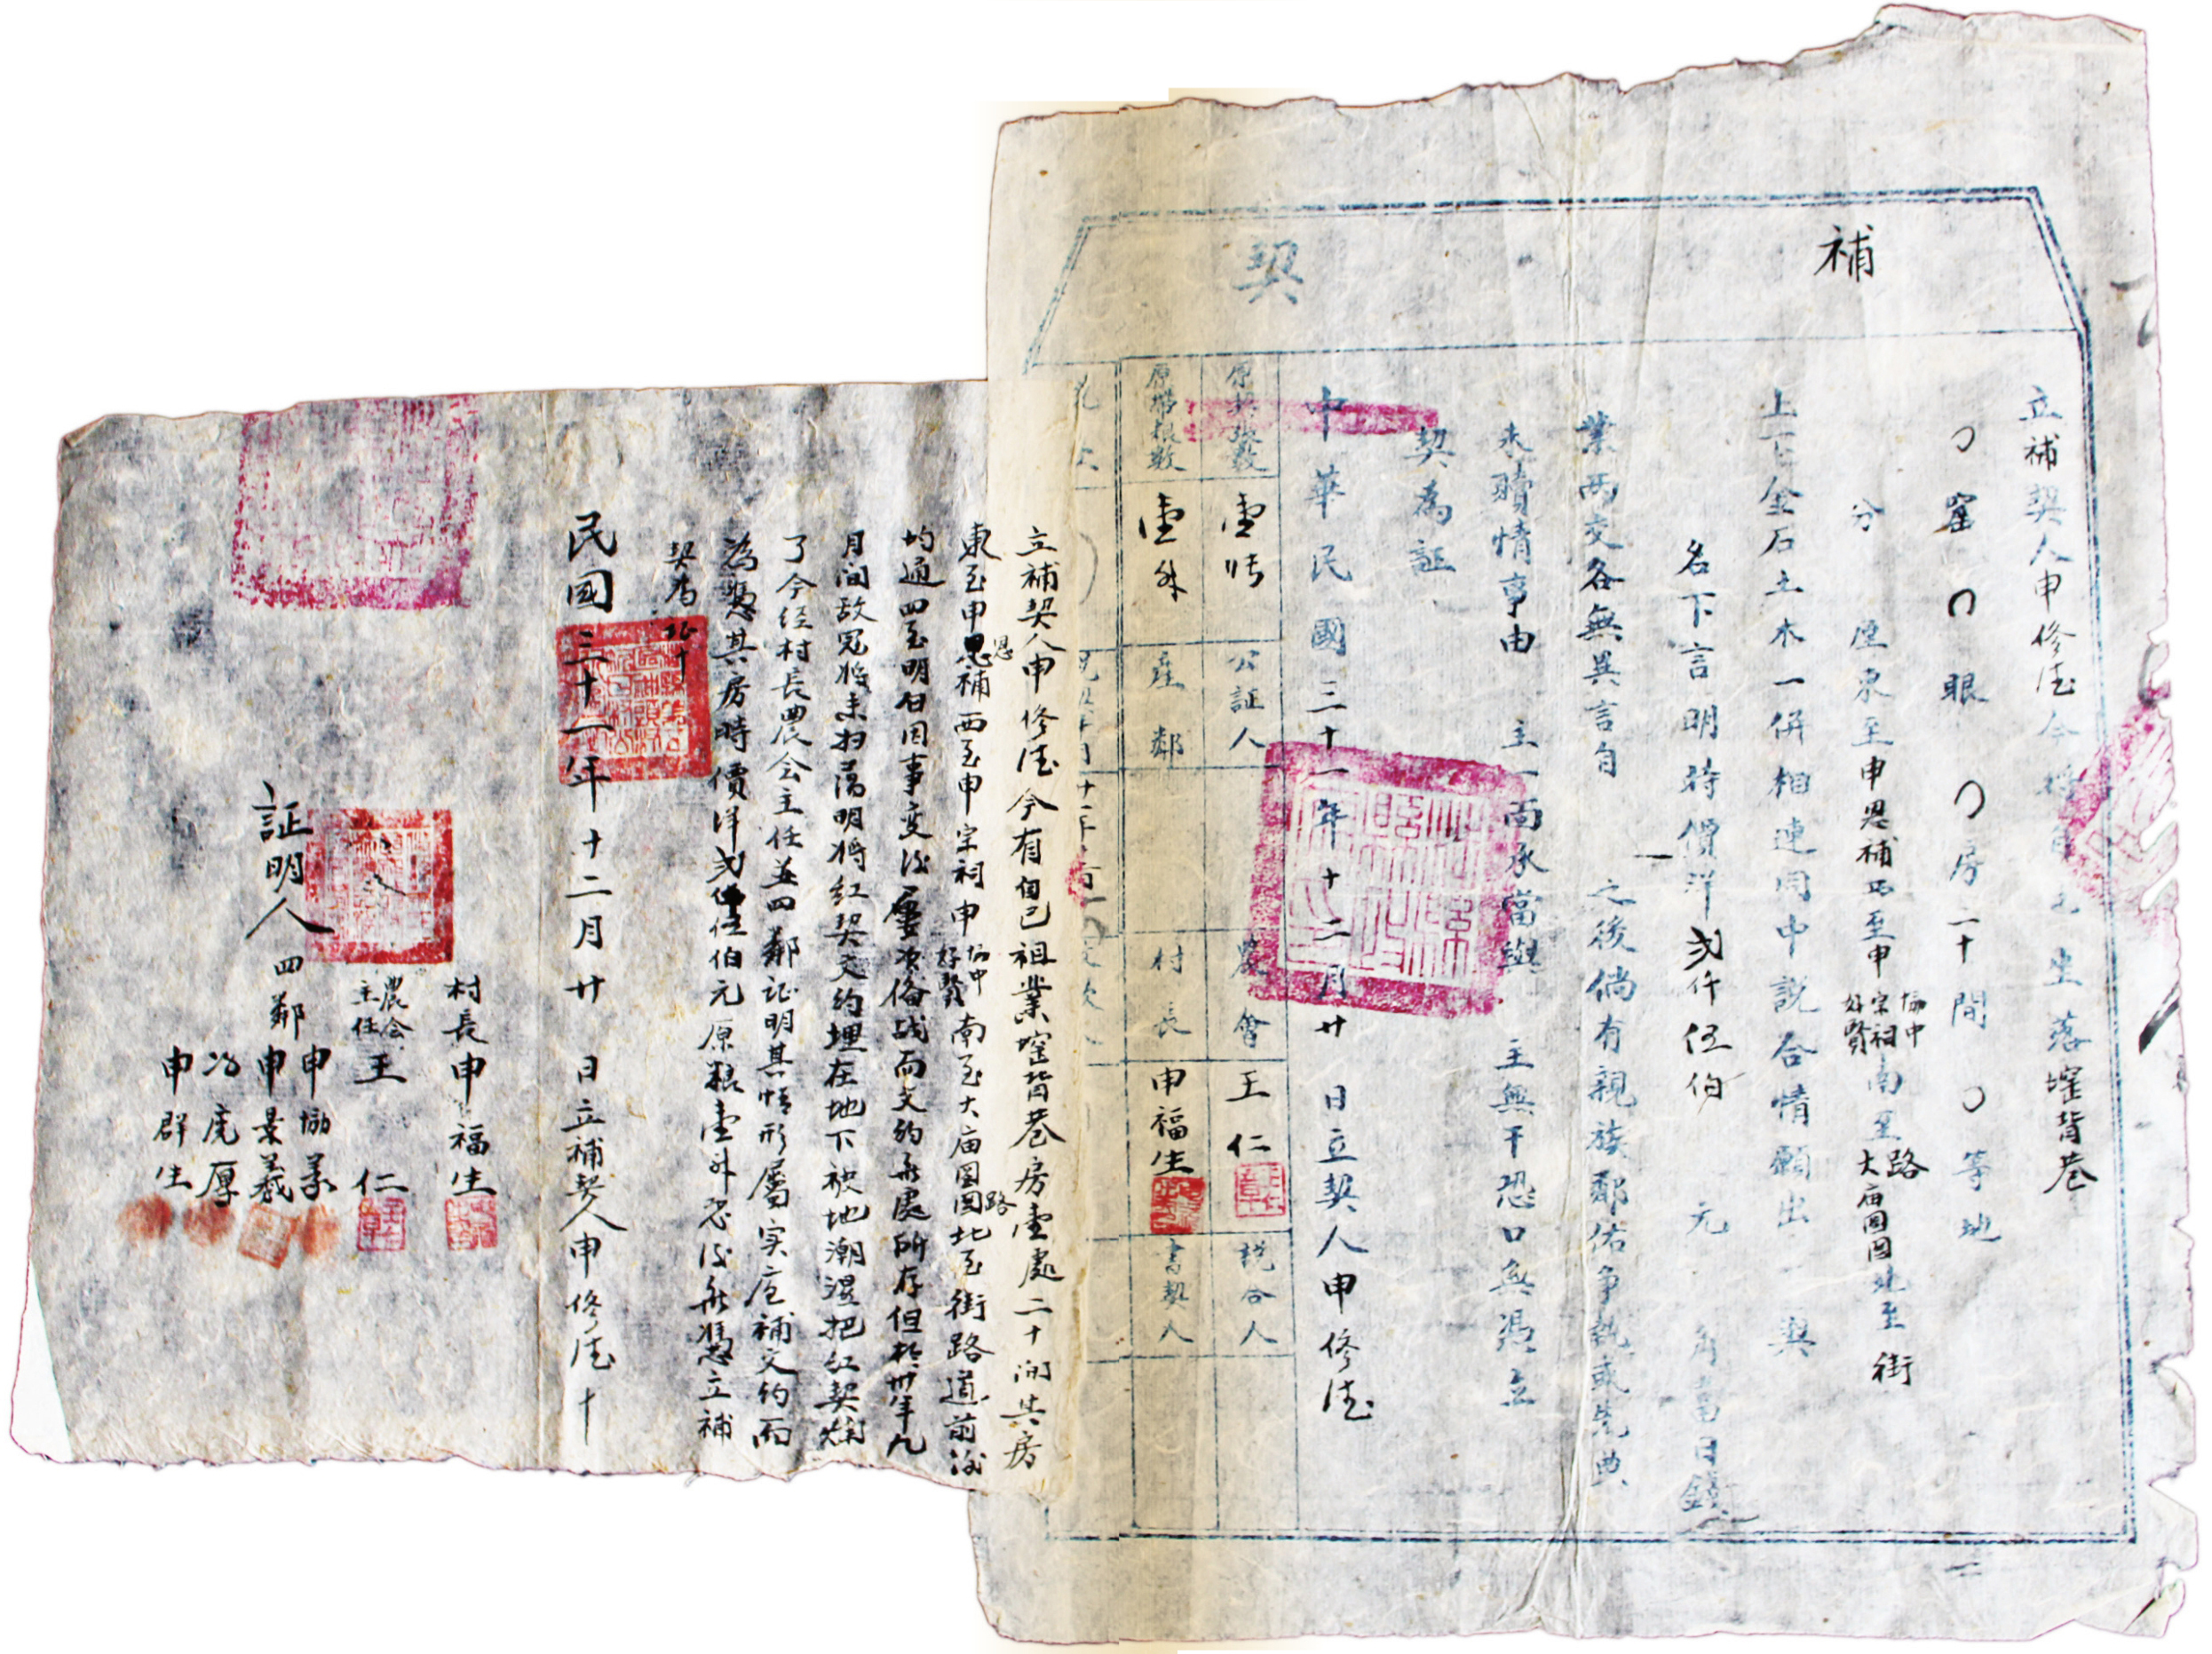 補
契
立補契人申修德今將自己坐落窰背巷
窰 眼 房二十間 等地
分 厘東至申恩補西至申宗祠協中好賢南至大庙園圊路北至街
上下金石土木一併相連同中説合情願出 與
名下言明時價洋弍仟伍佰 元 角當日錢
業兩交各無異言自 之後倘有親族鄰佑爭執或先典
未贖情事由 主一面承當與 主無干恐口無憑立
契為証
中華民國三十一年十二月廿 日立契人申修德
原契張數 壹帋 公証人 農會 王仁 説合人
原帶粮數 壹升 產鄰 村長 申福生 書契人
立補契人申修德今有自己祖業窰背巷房壹處二十间其房
東至申恩補西至申宗祠申協中好賢南至大庙園圊路北至街路道前後
均通四至明白因事变後屡次俻战而文约無處所存但於卅年九
月间敌寇将未扫荡明将红契文约埋在地下被地潮湿把红契烂
了今经村長農会主任並四鄰证明其情形屬实应補文约而
為憑其房時價洋弍仟伍佰元原粮壹升恐後無憑立補
契為证十
民國三十一年十二月廿 日立補契人申修德十
村長申福生
農会主任王 仁
証明人 四鄰 申協義
申景義
馮虎厚
申群生